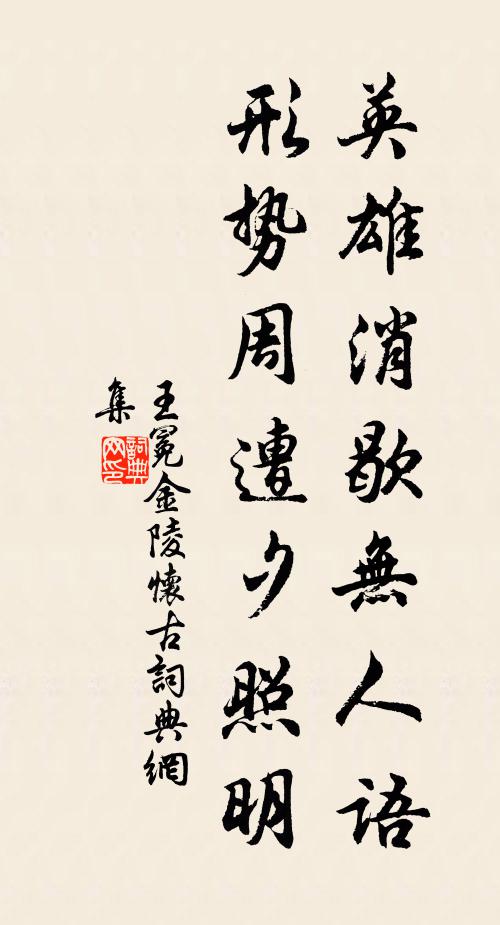 英雄消歇無人語
形勢周遭夕照明
王冕金陵懷古詞典網
集
詞典
网印